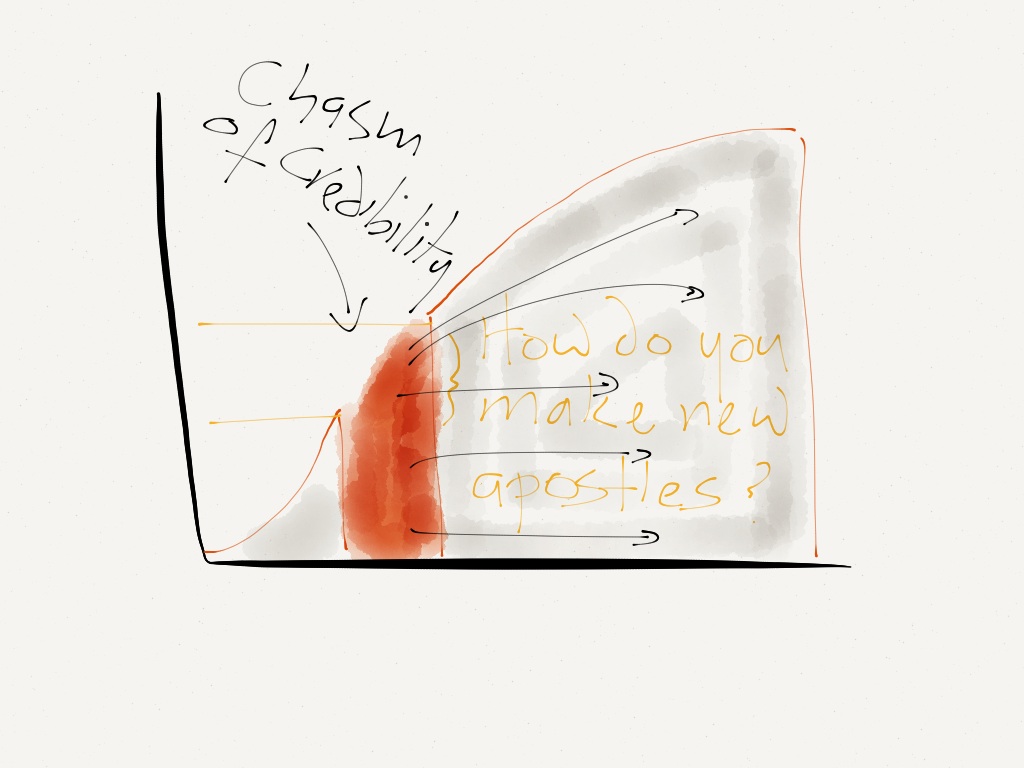 Chasm
of Credibility
How do you
make new
apostles?